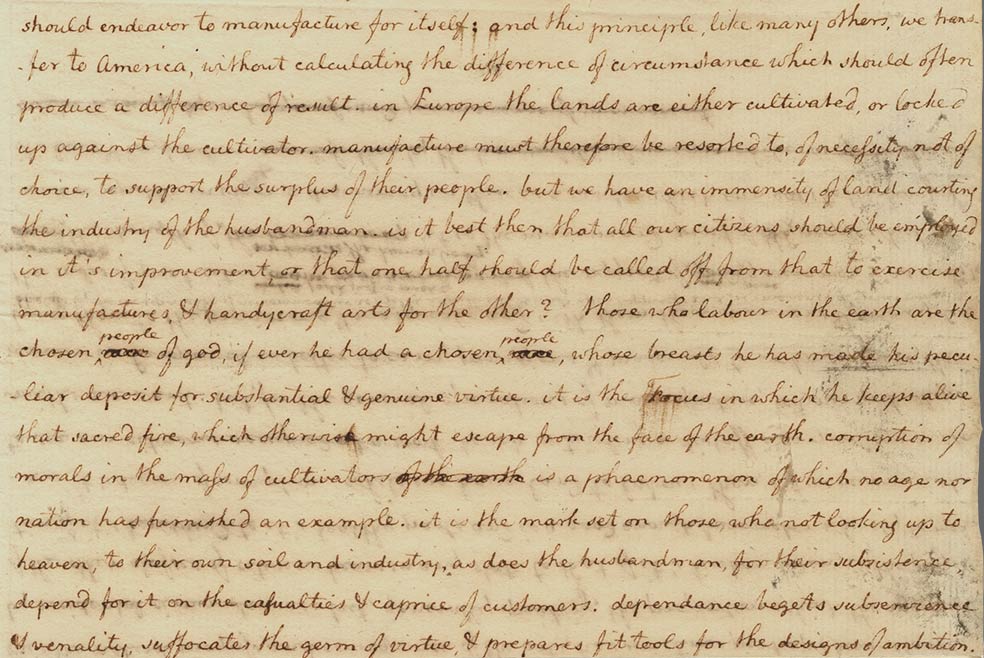 should endeavor to manufacture for itself; and this principle, like many others, we trans-
-fer to America, without calculating the difference of circumstance which should often
produce a difference of result. in Europe the lands are either cultivated, or locked
up against the cultivator. manufacture must therefore be resorted to, of necessity not of
choice, to support the surplus of their people. but we have an immensity of land courting
the industry of the husbandman. is it best then that all our citizens should be employed
in it's improvement, or that one half should be called off from that to exercise
manufactures, & handycraft arts for the other? those who labour in the earth are the
chosen people of god, if ever he had a chosen people, whose breasts he has made his pecu-
-liar deposit for substantial & genuine virtue. it is the Focus in which he keeps alive
that sacred fire, which otherwise might escape from the face of the earth. corruption of
morals in the mass of cultivators of the earth is a phaenomenon of which no age nor
nation has furnished an example. it is the mark set on those, who not looking up to
heaven, to their own soil and industry, as does the husbandman, for their subsistence
depend for it on the casualties & caprice of customers. dependance begets subservience
& venality, suffocates the germ of virtue, & prepares fit tools for the designs of ambition.